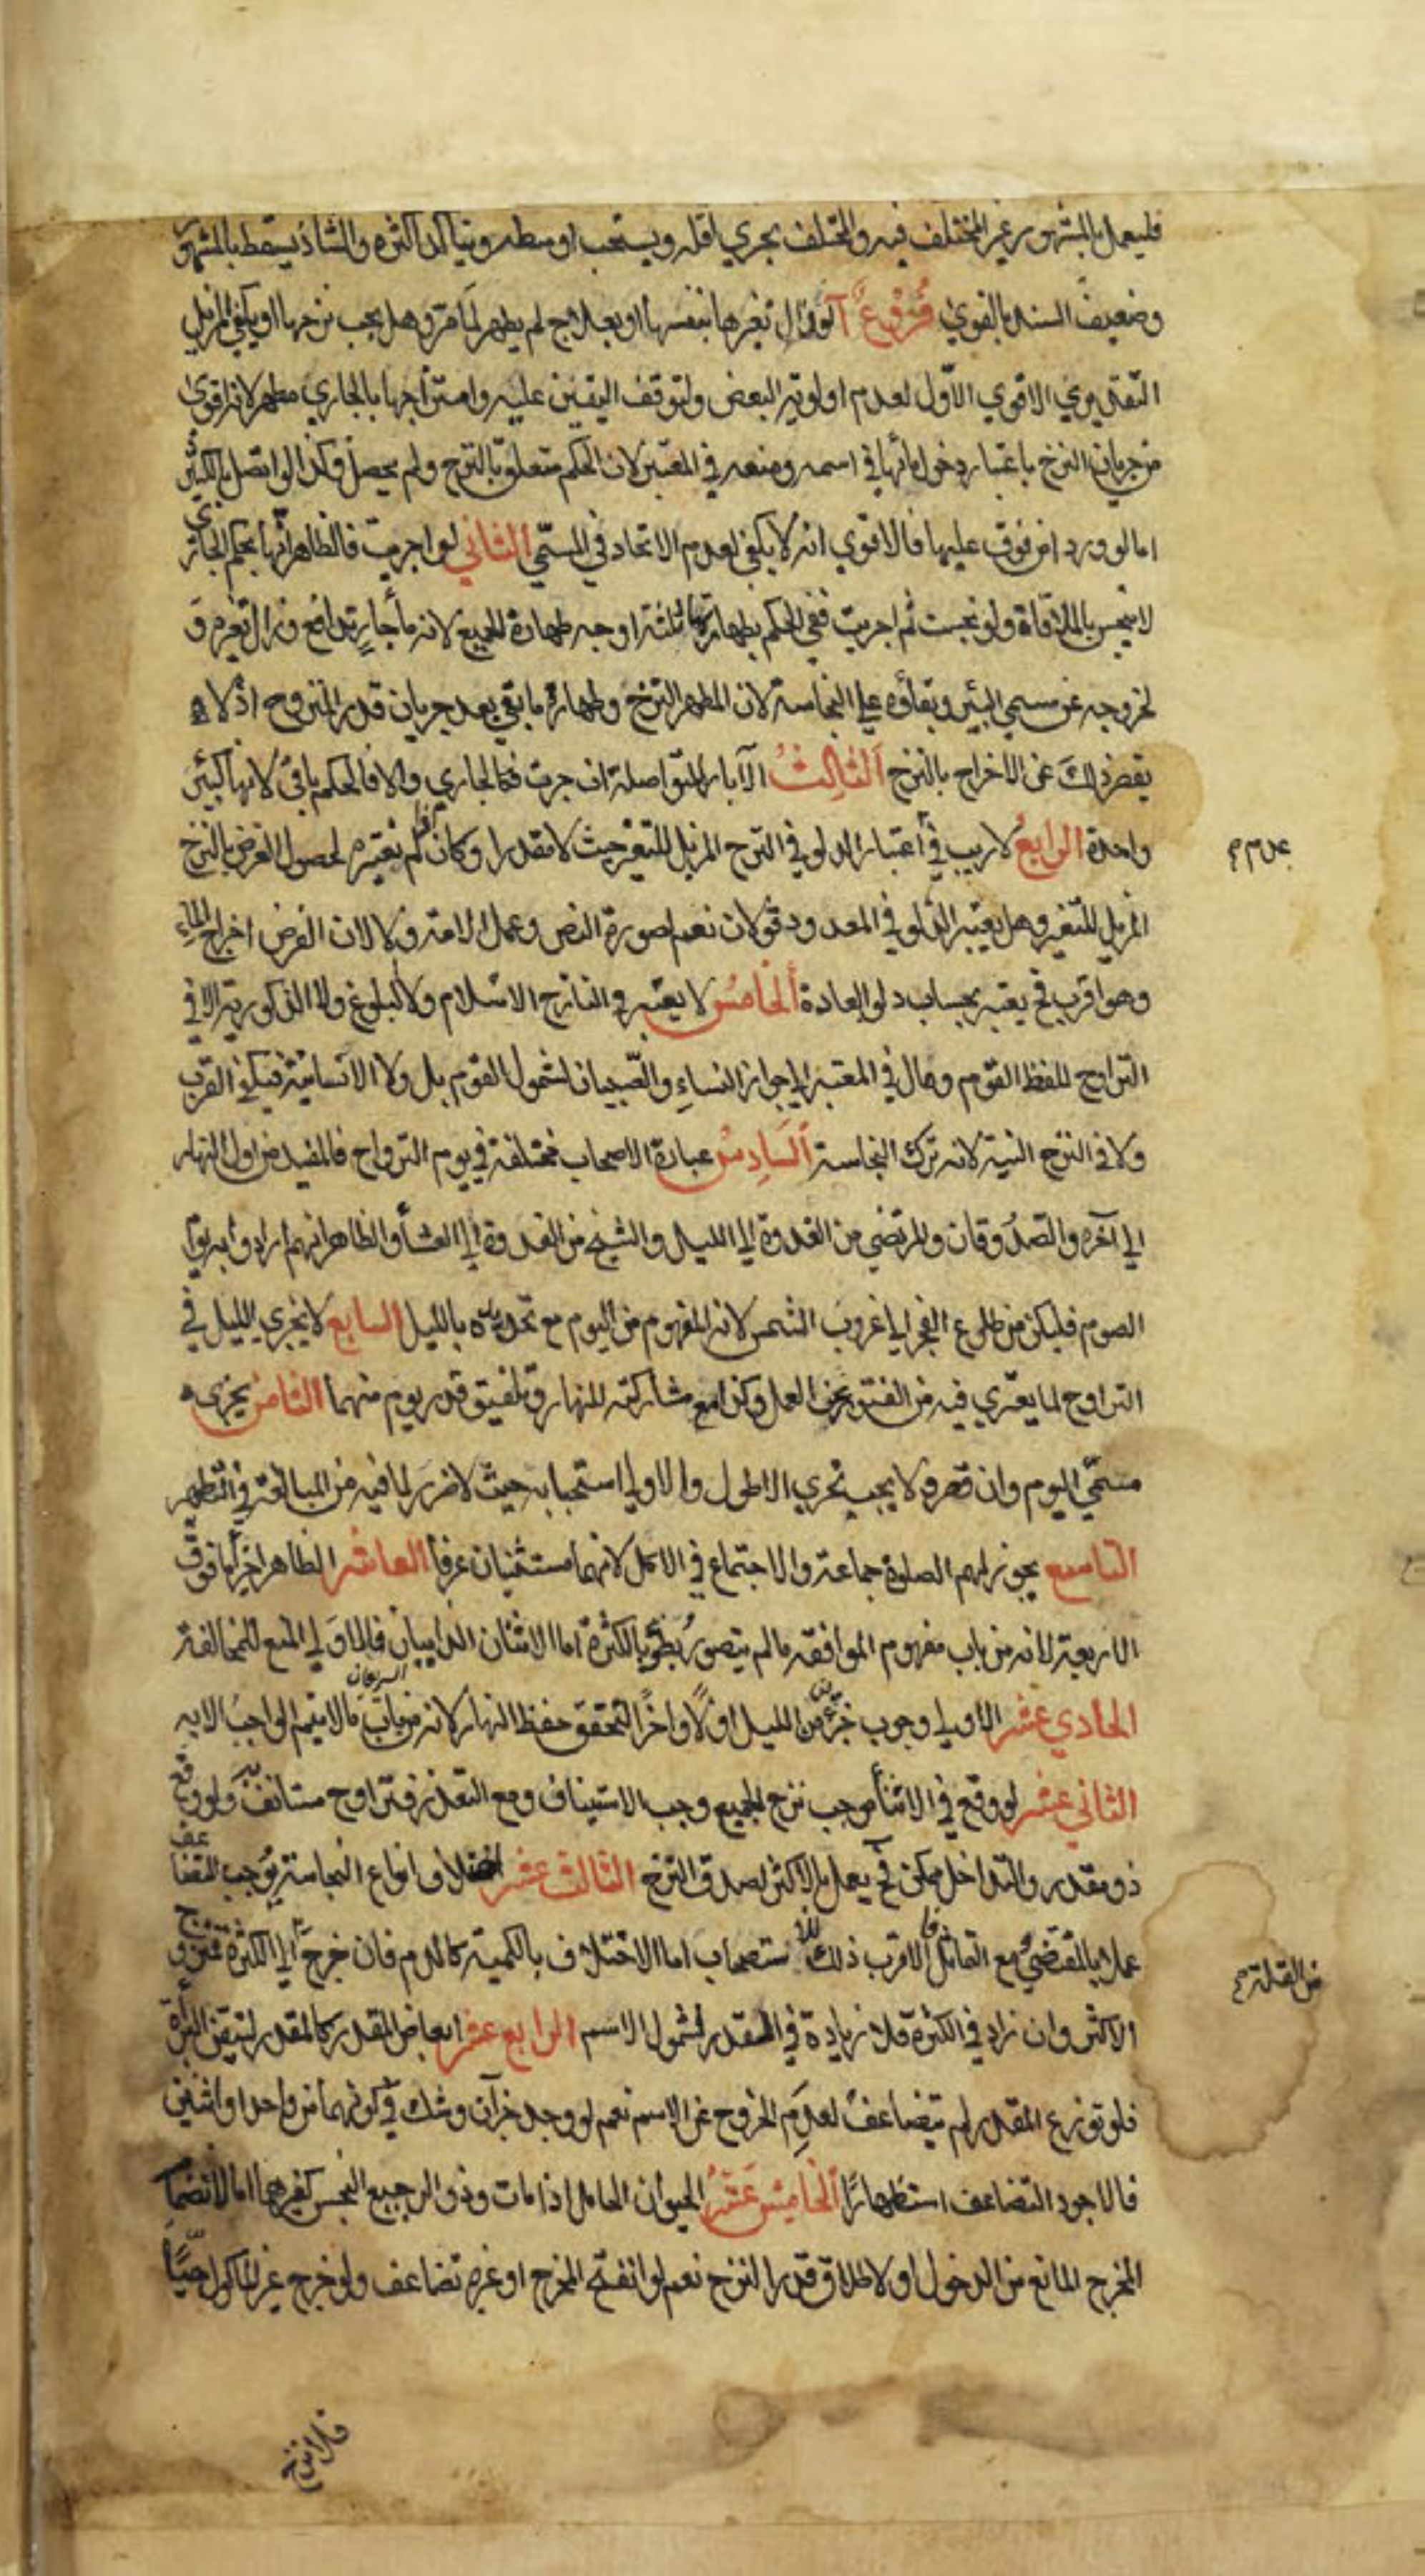 فليعمل بالمشهور غير المختلف فيه والمختلف يجري اقله ويستحب اوسطه ويتأكد اكثره والشاذ يسقط بالمشهور
وضعيف السند بالقوي فروع آ لو زال تغيرها بنفسها او بعلاج لم يطهر لما مر وهل يجب نزحها او يكفي المزيل
التقديري الاقوي الاول لعدم اولوية البعض ولتوقف اليقين عليه وامتزاجها بالجاري مطهر لانه اقوى
من جريان النزح باعتبار دخول مائها في اسمه ومنعه في المعتبر لان الحكم متعلق بالنزح ولم يحصل وكذا لو اتصل بالكثير
اما لو ورد من فوق عليها فالاقوي انه لا يكفي لعدم الاتحاد في المسمى الثاني لو اجريت فالظاهر انها بحكم الجاري
لا تنجس بالملاقاة ولو نجست ثم اجريت ففي الحكم بطهارتها ثلثة اوجه طهارة الجميع لانه ماء جار تدافع وزال تغيره و
لخروجه عن مسمي البئر وبقاؤه علي النجاسة لان المطهر النزح وطهارة ما بقي بعد جريان قدر المنزوح اذ لا
يقصر ذلك عن الاخراج بالنزح الثالث الآبار المتواصلة ان جرت فكالجاري والا فالحكم باق لانها كبئر
واحدة الرابع لا ريب في اعتبار الدلو في النزح المزيل للتغير حيث لا مقدر وان كان لم نعتبره لحصول الغرض بالنزح
عدم م
المزيل للتغير وهل يعتبر الدلو في المعدود قولان نعم لصورة النص وعمل الامة ولا لان الغرض اخراج الماء
وهو اقرب فح يعتبر بحساب دلو العادة الخامس لا يعتبر في النازح الاسلام ولا البلوغ ولا الذكورية الا في
التراوح للفظ القوم ومال في المعتبر الي جواز النساء والصبيان لشمول القوم بل ولا الانسانية فيكفي القرب
ولا في النزح النية لانه ترك النجاسة السادس عبارة الاصحاب مختلفة في يوم التراوح فالمفيد من اول النهار
الي آخره والصدوقان والمرتضي من الغدوة الي الليل والشيخ من الغدوة الي العشاء والظاهر انهم ارادوا به يوم
الصوم فليكن من طلوع الفجر الي غروب الشمس لانه المفهوم من اليوم مع تحديده بالليل السابع لا يجزي الليل في
التراوح لما يعتري فيه من الفتور عن العمل وكذا مع مشاركته للنهار وتلفيق قدر يوم منهما الثامن يجزي
مسمي اليوم وان قصر ولا يجب تحري الاطول والاولي استحبابه حيث لا ضرر لما فيه من المبالغة في التطهير
التاسع يجوز لهم الصلوة جماعة والاجتماع في الاكل لانهما مستثنيان عرفا العاشر الظاهر اجزاء ما فوق
الاربعة لانه من باب مفهوم الموافقه ما لم يتصور بطؤ بالكثرة اما الاثنان الدايبان فالاولي المنع للمخالفة
الحادي عشر الاولي وجوب جزء من الليل اولا واخرا لتحقق حفظ النهار لانه من باب ما لا يتم الواجب الا به
الثاني عشر لو وقع في الاثناء موجب نزح الجميع وجب الاستيناف ومع التعذر فتراوح مستانف ولو وقع
ذو مقدر والتداخل ممكن فح يعمل بالاكثر لصدق النزح الثالث عشر اختلاف انواع النجاسة يوجب التضاعف
عملا بالمقتضي مع التماثل الاقرب ذلك للاستصحاب اما الاختلاف بالكمية كالدم فان خرج الي الكثرة فمنزوح
من القلة م
الاكثر وان زاد في الكثرة فلا زيادة في المقدر لشمول الاسم الرابع عشر ابعاض المقدر كالمقدر لتيقن البراءة
فلو توزع المقدر لم يتضاعف لعدم الخروج عن الاسم نعم لو وجد جزآن وشك في كونهما من واحد او اثنين
فالاجود التضاعف استظهارا الخامس عشر الحيوان الحامل اذا مات وذو الرجيع النجس كغيرهما اما لانضمام
المخرج المانع من الدخول او لاطلاق قدر النزح نعم لو انفتح المخرج او غيره تضاعف ولو خرج غير المأكول حيا
فلا نزح